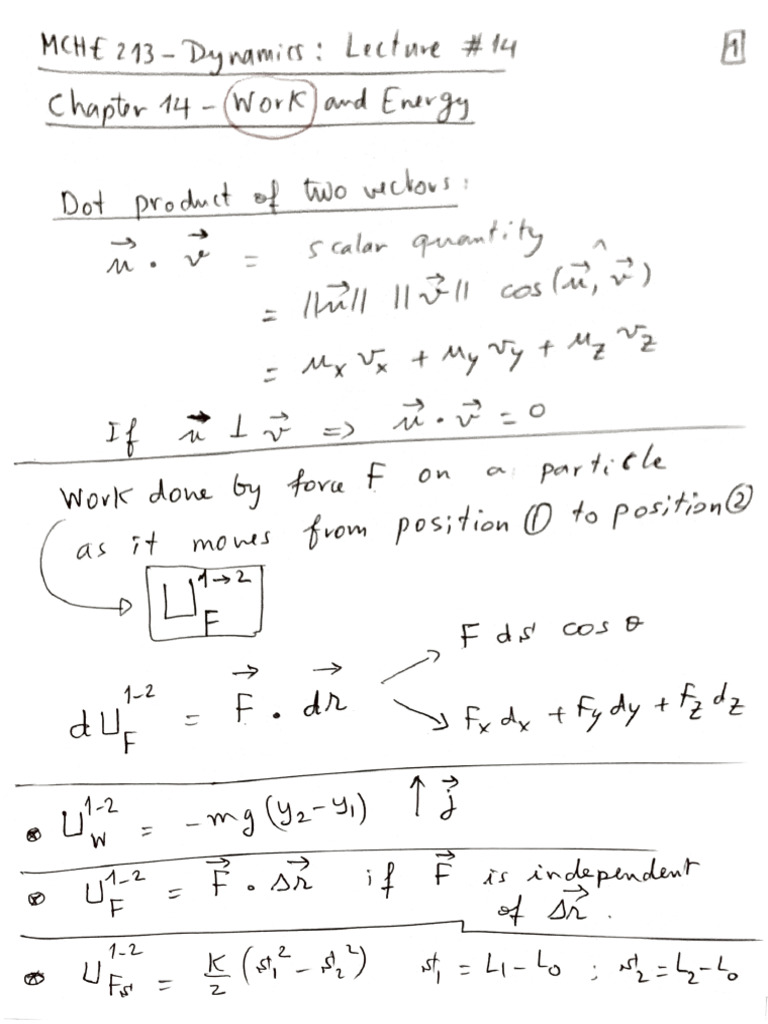 MCHE 213 - Dynamics: Lecture #14
1
Chapter 14 - Work and Energy
Dot product of two vectors:
u⃗ . v⃗ = scalar quantity
= ||u⃗|| ||v⃗|| cos (u⃗, v⃗)^
= uₓ vₓ + u_y v_y + u_z v_z
If u⃗ ⊥ v⃗ => u⃗ . v⃗ = 0
Work done by force F on a particle
as it moves from position ① to position ②
U_F^{1→2}
F ds cos θ
dU_F^{1-2} = F⃗ . dr⃗
Fₓ dₓ + F_y dy + F_z dz
U_W^{1-2} = -mg (y₂ - y₁) ↑ j⃗
U_F^{1-2} = F⃗ . Δr⃗ if F⃗ is independent
of Δr⃗.
U_{Fs}^{1-2} = k/2 (s₁² - s₂²) s₁ = L₁ - L₀ ; s₂ = L₂ - L₀